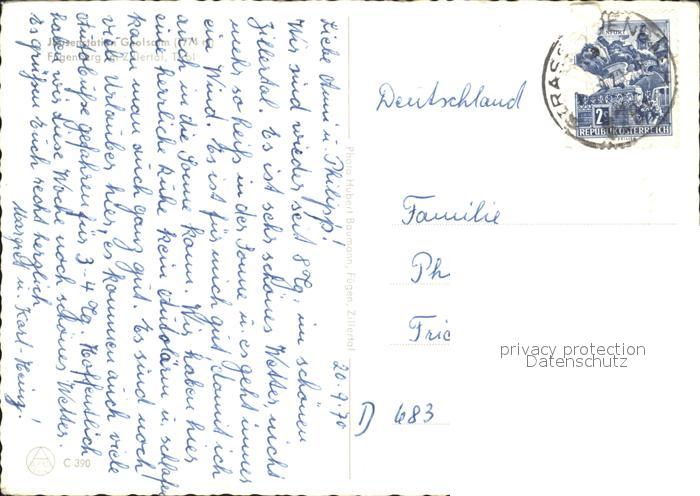 Jausenstation Goglsalm (1774 m)
Fügenberg im Zillertal, Tirol
20.9.70
Liebe Anni u. Philipp!
Wir sind wieder seit 8 Tg. im schönen
Zillertal. Es ist sehr schönes Wetter nicht
mehr so heiß in der Sonne u. es geht immer
ein Wind. Es ist für mich gut damit ich
auch in die Sonne kann. Wir haben hier
eine herrliche Ruhe kein Autolärm u. schlafen
kann man auch ganz gut. Es sind noch
viele Urlauber hier, es kommen auch viele
Autobuße gefahren für 3-4 Tg. Hoffentlich
haben wir diese Woche noch schönes Wetter.
Es grüßen Euch recht herzlich
Margret u. Karl-Heinz!
C 390
Photo Hubert Baumann, Fügen, Zillertal
STRASS
2S
REPUBLIK ÖSTERREICH
Deutschland
Familie
Ph
Fric
D 683
privacy protection
Datenschutz